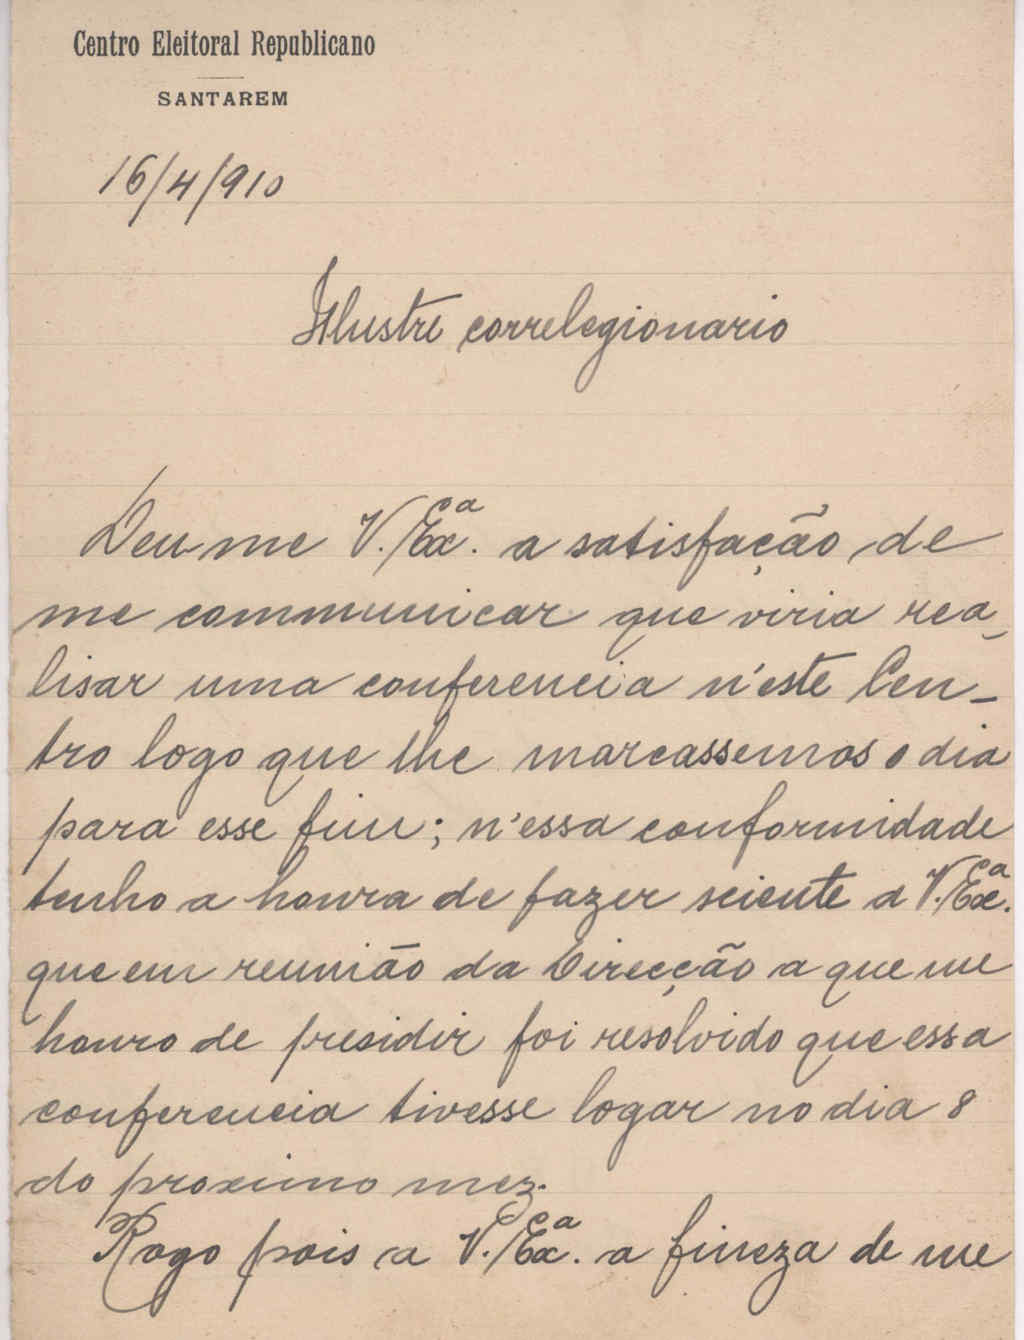 Centro Eleitoral Republicano
SANTAREM
16/4/910
Illustre correlegionario
Deu-me V. Exª. a satisfação de
me communicar que viria rea-
lisar uma conferencia n'este Cen-
tro logo que lhe marcassemos o dia
para esse fim; n'essa conformidade
tenho a honra de fazer sciente a V. Exª.
que em reunião da Direcção a que me
honro de presidir foi resolvido que essa
conferencia tivesse logar no dia 8
do proximo mez.
Rogo pois a V. Exª. a fineza de me